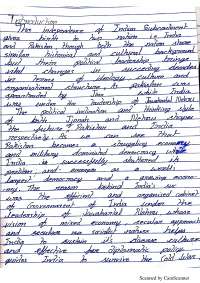 Introduction
The independence of Indian Subcontinent
gives birth to two nations i.e India
and Pakistan though both the nation share
similar historical and cultural background
but their political leadership brings
vital changes in succeeding decades
in terms of ideology culture and
organizational structure As pakistan was
by Jinnah while India
was under the leadership of Jawaharlal Nehru
The political and thinking
of both Jinnah and Nehru shapes
the future of Pakistan and India
respectively As we can see that
Pakistan becomes a struggling economy
and military dominated democracy while
India is successfully its
position and emerges as a world
largest democracy and a growing econo-
my. The reason behind India's
was the efficient and organized cabinet
of Government of India under the
leadership of Jawaharlal Nehru whose
vision of mixed economy secular
and secular nature helps
India to sustain its diverse culture
and effective foreign diplomatic policy
India to survive the Cold War.
Scanned by CamScanner